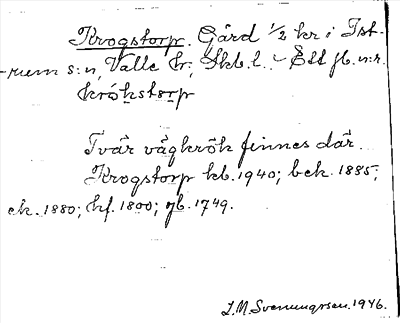 Krogstorp. Gård 1/2 kr i Ist-
rum s:n, Valle hr; Skb. l. – Ett fb. n:r
krókstorp
Tvär vägkrök finnes där.
Krogstorp kb. 1940; bek. 1885;
ek. 1880; hf. 1800; gb. 1749.
J. M. Svenungsson. 1946.